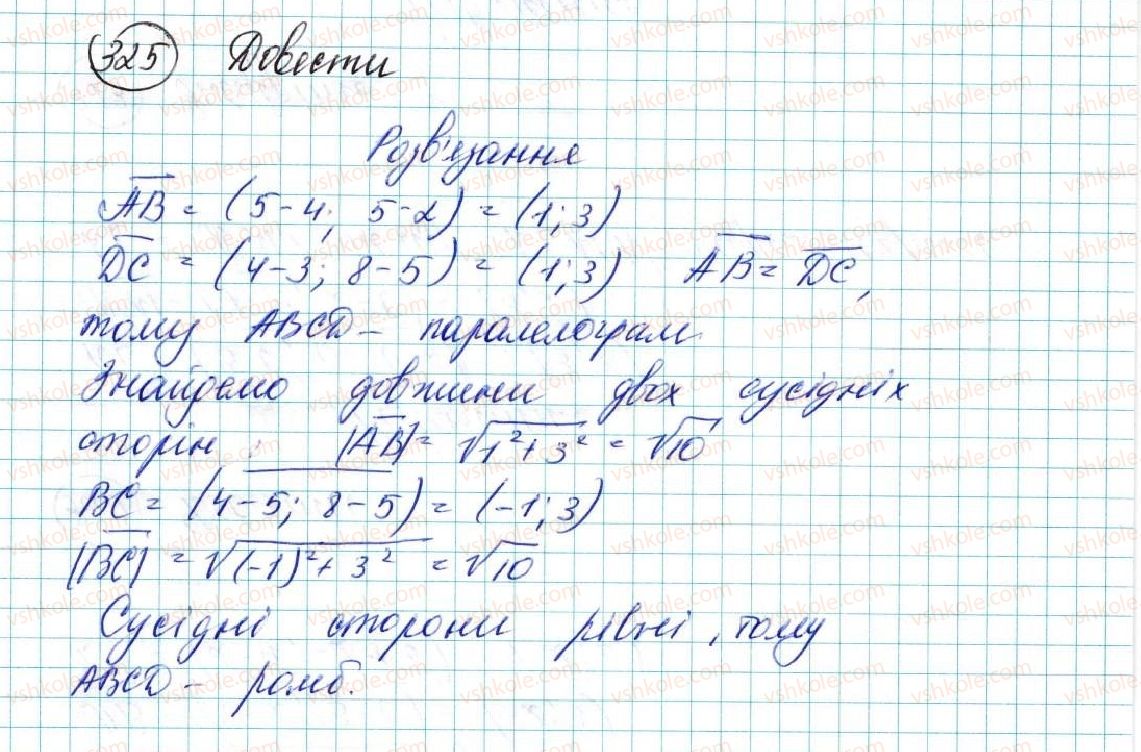 325 Довести
Розв'язання
AB = (5-4; 5-2) = (1; 3)
DC = (4-3; 8-5) = (1; 3) AB = DC,
тому ABCD - паралелограм
Знайдемо довжини двох сусідніх
сторін |AB| = √1²+3² = √10
BC = (4-5; 8-5) = (-1; 3)
|BC| = √(-1)²+3² = √10
Сусідні сторони рівні, тому
ABCD - ромб.